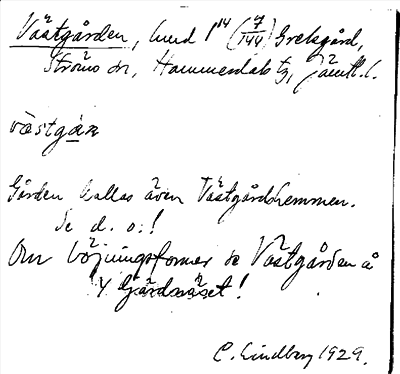 Västgården, hmd 1¹⁴ (7/144) Grelsgård,
Ströms sn, Hammerdals tg, Jämtl. l.
västgáṉ
Gården kallas även Västgårdshemmen.
Se d. o.!
Om böjningsformer se Västgården å
4 Gärdnäset!
C. Lindberg 1929.